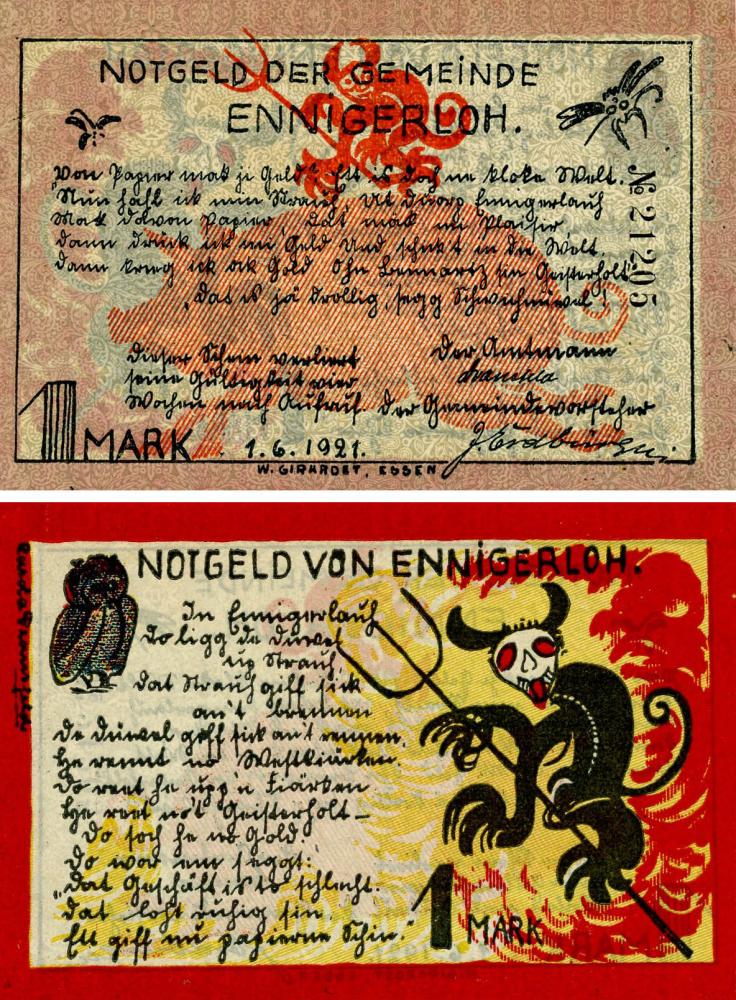 NOTGELD DER GEMEINDE
ENNIGERLOH.
"Von Papier mak ji Geld? Ett is doch ne kloke Welt.
Nun hahl ick min Strauh Ut Duorp Ennigerlauh
Mak davon Papier Dat mak mi Plaisir
dann drück ick mi Geld Und schick in die Welt,
dann krieg ick ok Gold Ohn Lennartz sin Geisterholt"
"Dat is ja drollig," segg Schwichmüwel!
№ 21205
Dieser Schein verliert
seine Gültigkeit vier
Wochen nach Aufruf.
Der Amtmann
Der Gemeindevorsteher
1 MARK
1.6.1921.
W. GIRARDET, ESSEN
NOTGELD VON ENNIGERLOH.
In Ennigerlauh
Do ligg de Düwel
up Strauh,
Dat Strauh giff sick
an't brennen
De Düwel goff sick an't rennen.
He rennt no Westkiärken.
Do reet he upp'n Fiärken
He reet no't Geisterholt —
Do soch he no Gold
Do wor em seggt:
"Dat Geschäft is to schlecht.
Dat loht ruhig sin
Ett giff nu papierne Schin."
1 MARK